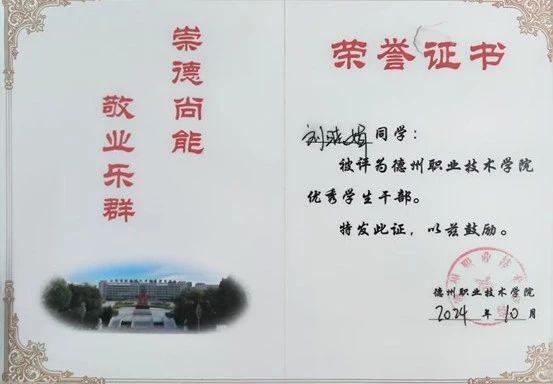 崇德尚能
敬业乐群
荣誉证书
刘 同学：
被评为德州职业技术学院
优秀学生干部。
特发此证，以兹鼓励。
德州职业技术学院
2024年10月